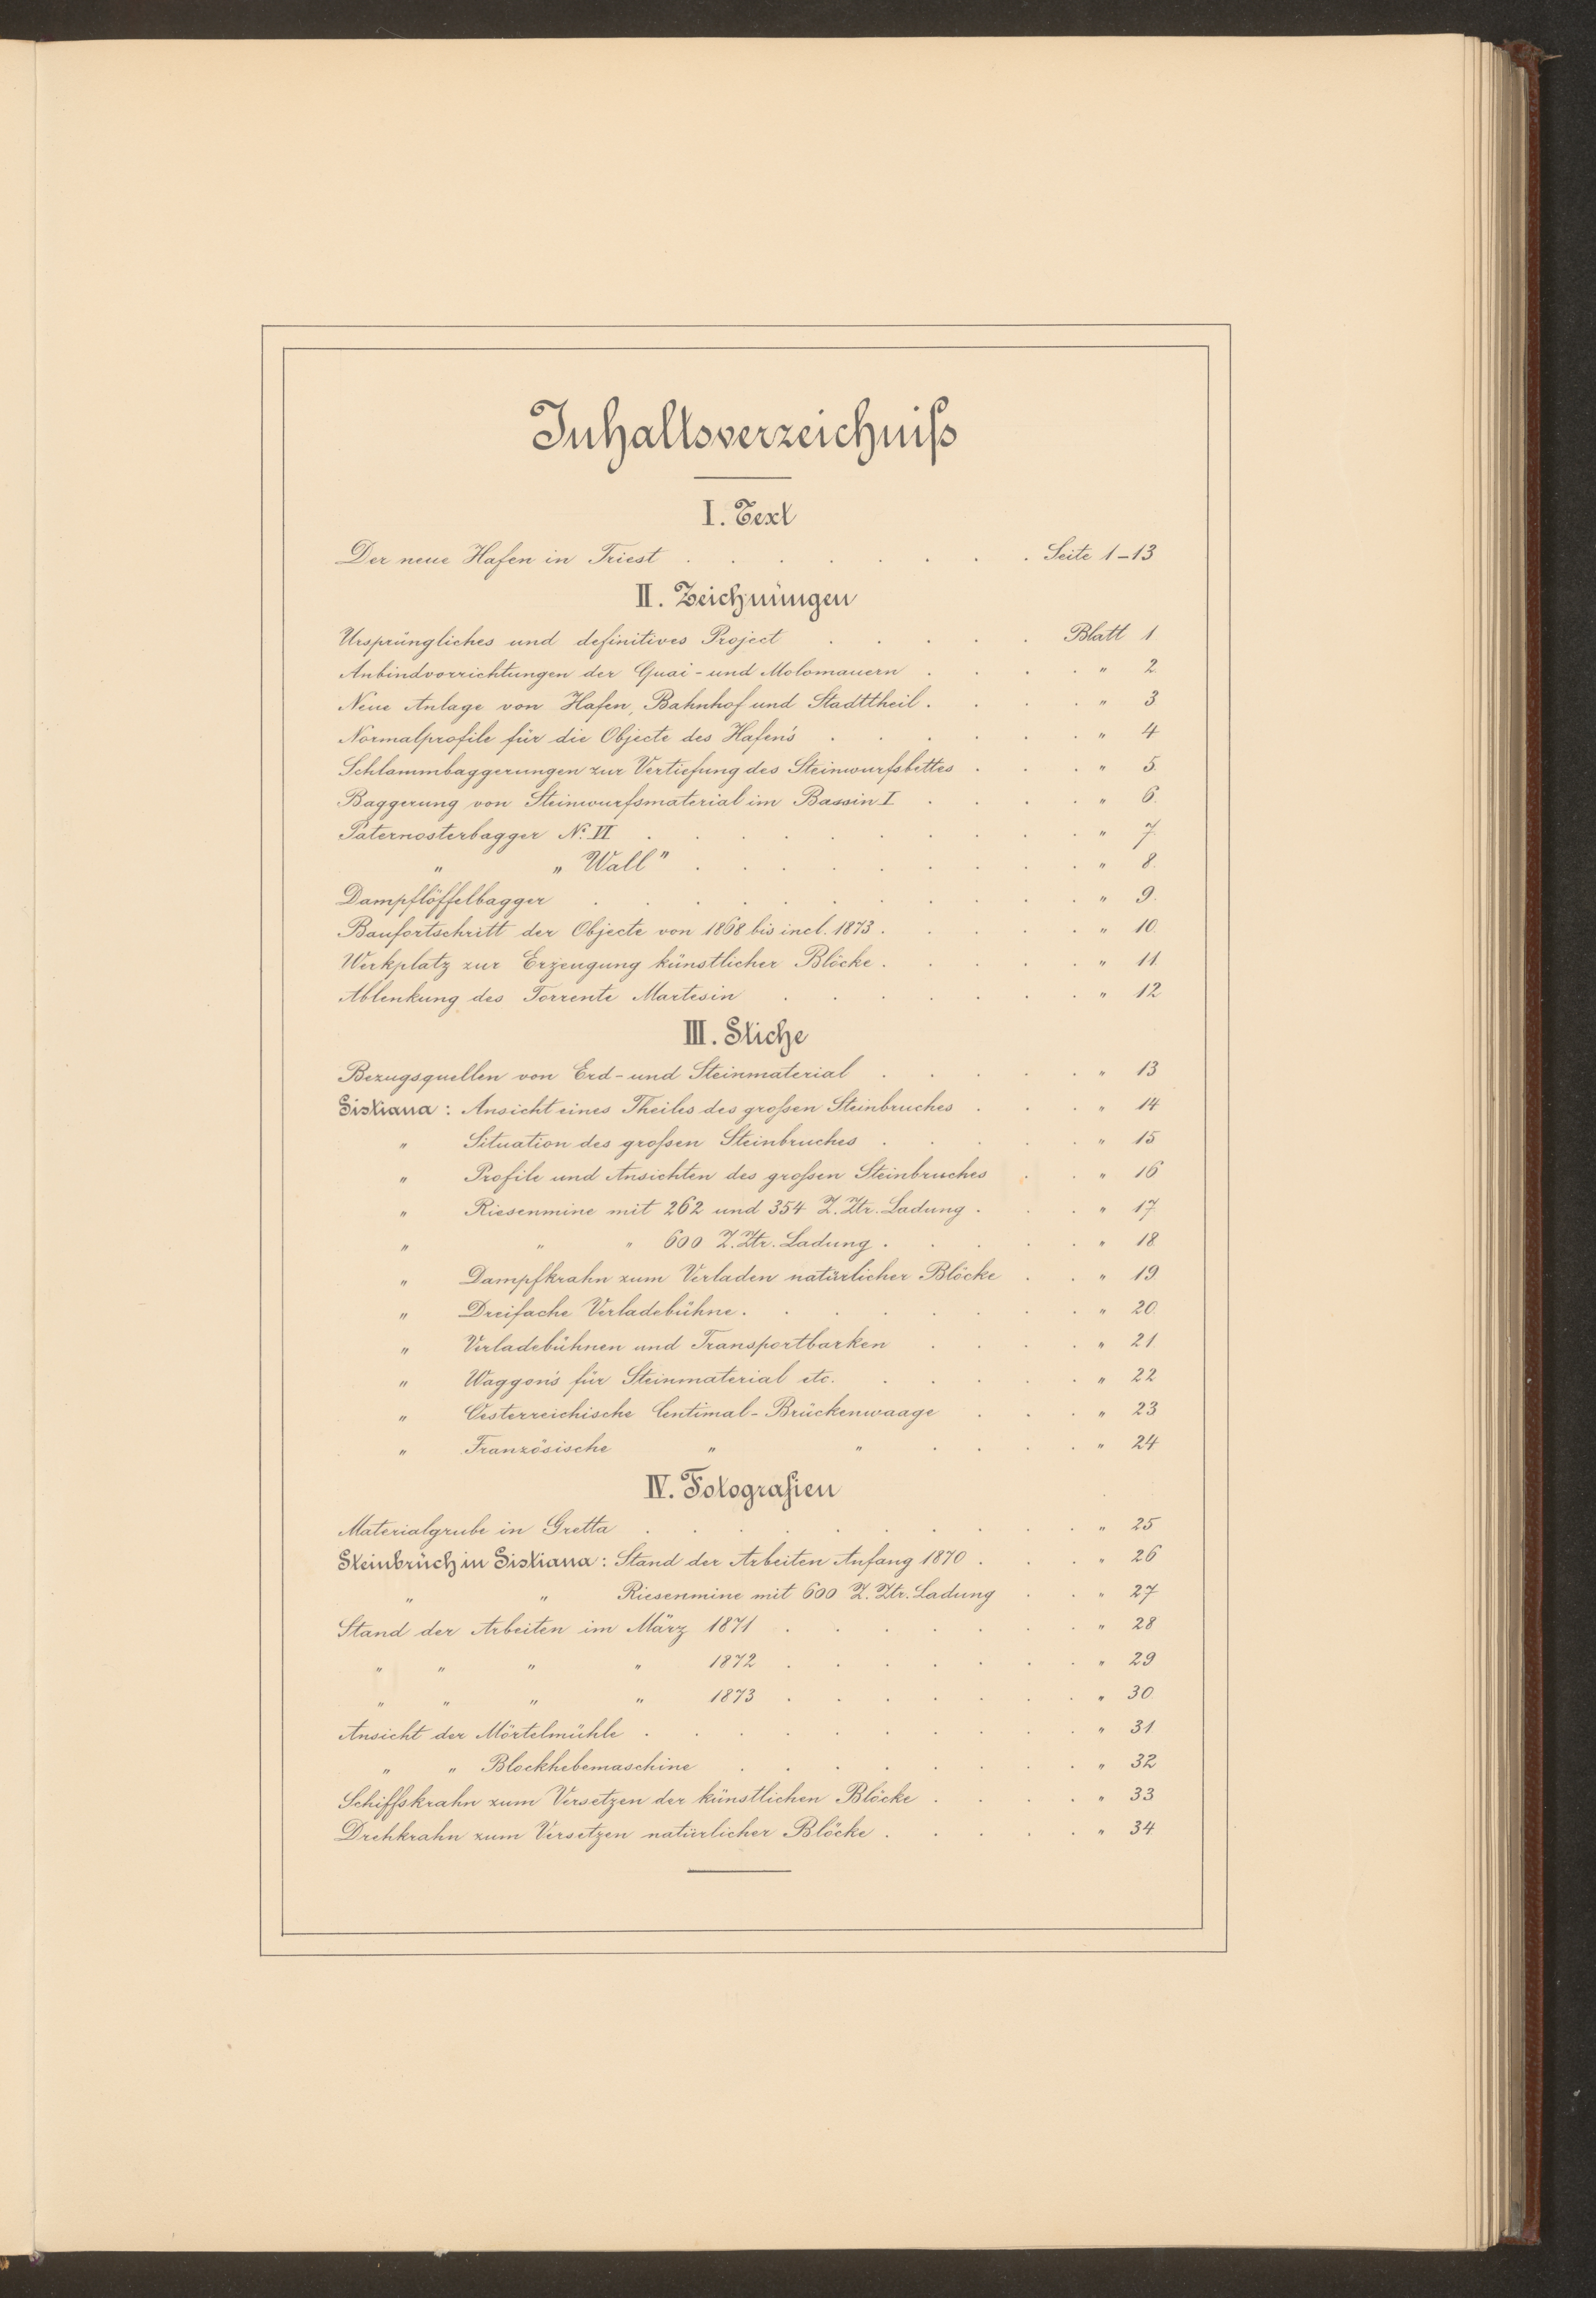 Inhaltsverzeichniß
I. Text
Der neue Hafen in Triest . . . . . . . . Seite 1–13
II. Zeichnungen
Ursprüngliches und definitives Project . . . . . Blatt 1
Anbindvorrichtungen der Quai- und Molomauern . . . . " 2.
Neue Anlage von Hafen, Bahnhof und Stadttheil . . . . " 3.
Normalprofile für die Objecte des Hafen's . . . . . . " 4
Schlammbaggerungen zur Vertiefung des Steinwurfsbettes . . . " 5.
Baggerung von Steinwurfsmaterial im Bassin I . . . . " 6.
Paternosterbagger No. VI . . . . . . . . . " 7.
" „Wall" . . . . . . . . . " 8.
Dampflöffelbagger . . . . . . . . . . . " 9.
Baufortschritt der Objecte von 1868 bis incl. 1873 . . . . . " 10.
Werkplatz zur Erzeugung künstlicher Blöcke . . . . . " 11.
Ablenkung des Torrente Martesin . . . . . . . " 12
III. Stiche
Bezugsquellen von Erd- und Steinmaterial . . . . . " 13
Sistiana: Ansicht eines Theiles des großen Steinbruches . . . " 14
" Situation des großen Steinbruches . . . . . " 15
" Profile und Ansichten des großen Steinbruches . . " 16
" Riesenmine mit 262 und 354 Z. Ztr. Ladung . . . " 17
" " " 600 Z. Ztr. Ladung . . . . . " 18
" Dampfkrahn zum Verladen natürlicher Blöcke . . " 19
" Dreifache Verladebühne . . . . . . . . " 20.
" Verladebühnen und Transportbarken . . . . " 21.
" Waggon's für Steinmaterial etc. . . . . . " 22
" Oesterreichische Centimal-Brückenwaage . . . " 23
" Französische " " . . . . " 24
IV. Fotografien
Materialgrube in Gretta . . . . . . . . . . " 25
Steinbruch in Sistiana: Stand der Arbeiten Anfang 1870 . . . " 26
" " Riesenmine mit 600 Z. Ztr. Ladung . . " 27
Stand der Arbeiten im März 1871 . . . . . . . " 28
" " " " 1872 . . . . . . . " 29
" " " " 1873 . . . . . . . " 30.
Ansicht der Mörtelmühle . . . . . . . . . . " 31.
" " Blockhebemaschine . . . . . . . . " 32
Schiffskrahn zum Versetzen der künstlichen Blöcke . . . . " 33
Drehkrahn zum Versetzen natürlicher Blöcke . . . . . " 34